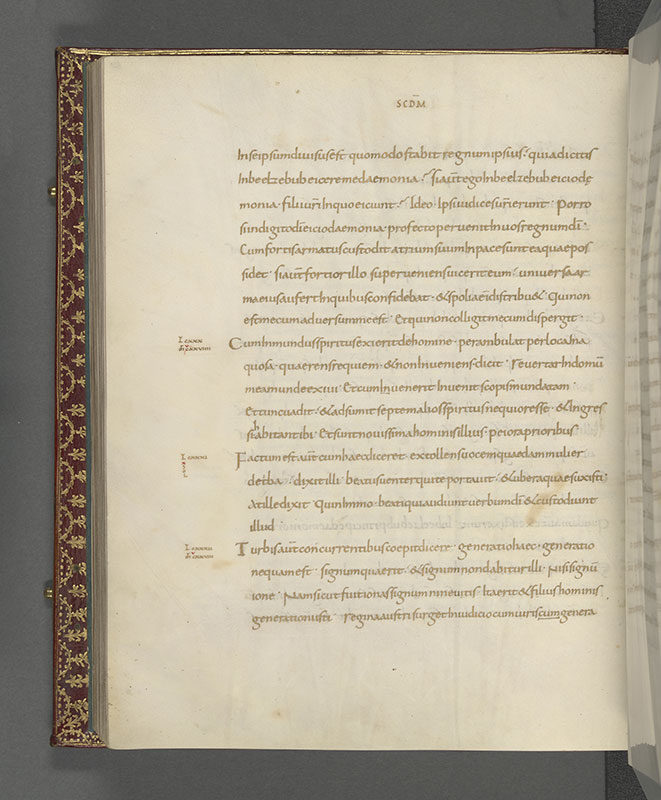 SCDM
In se ipsum diuisus est quomodo stabit regnum ipsius · quia dicitis
In beelzebub eicere me daemonia · Si aut ego In beelzebub eicio dę
monia · filii uri In quo eiciunt · Ideo Ipsi iudices uri erunt · Porro
si In digito di eicio daemonia · profecto peruenit In uos regnum di ·
Cum fortis armatus custodit atrium suum In pace sunt ea quae pos
sidet · si aut fortior illo superueniens uicerit eum · uniuersa ar
ma eius aufert In quibus confidebat · & spolia ei distribu& · Qui non
est mecum aduersum me est · Et qui non colligit mecum dispergit ·
Cum Inmundus spiritus exierit de homine · perambulat per loca Ina
quosa · quaerens requiem · & non Inueniens dicit · reuertar In domū
meam unde exiui · Et cum Inuenerit Inuenit scopis mundatam
Et tunc uadit · & adsumit septem alios spiritus nequiores se · & Ingres
si habitant ibi · Et sunt nouissima hominis illius · peiora prioribus
Factum est aut cum haec diceret · extollens uocem quaedam mulier
de tba · dixit illi · beatus uenter qui te portauit · & ubera quae suxisti
At ille dixit · Quin Immo · beati qui audiunt uerbum di & custodiunt
illud
Turbis aut concurrentibus coepit dicere · generatio haec · generatio
nequam est · signum quaerit · & signum non dabitur illi · Nisi signū
ione · Nam sicut fuit ionas signum nineuitis · Ita erit & filius hominis
generationi isti · regina austri surget In iudicio cum uiris cum genera